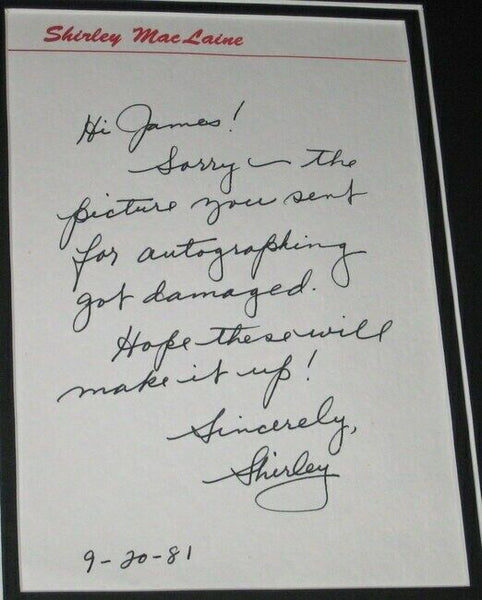 Shirley MacLaine
Hi James!
Sorry — the
picture you sent
for autographing
got damaged.
Hope these will
make it up!
Sincerely,
Shirley
9-20-81